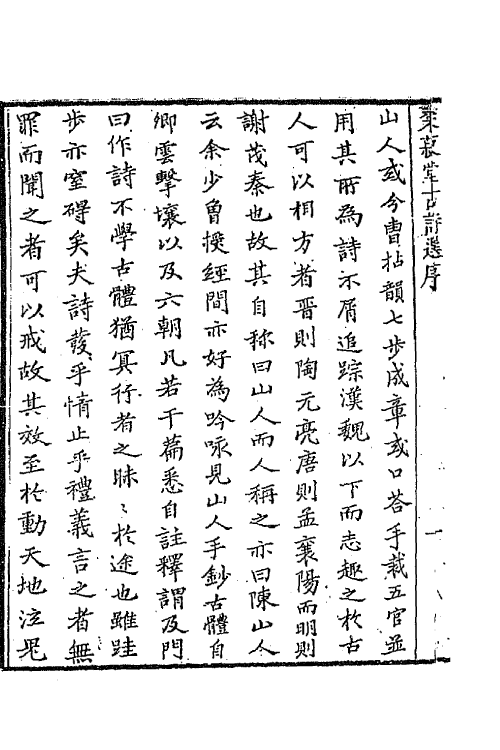 古詩選序
一
山人或今曹拈韻七步成章或口荅手裁五官並
用其所為詩不屑追踪漢魏以下而志趣之於古
人可以相方者晋則陶元亮唐則孟襄陽而明則
謝茂秦也故其自称曰山人而人稱之亦曰陳山人
云余少曾授經間亦好為吟咏見山人手鈔古體自
卿雲擊壤以及六朝凡若干篇悉自註釋謂及門
曰作詩不學古體猶冥行者之昧〻於途也雖跬
步亦窒碍矣夫詩發乎情止乎禮義言之者無
罪而聞之者可以戒故其效至於動天地泣鬼